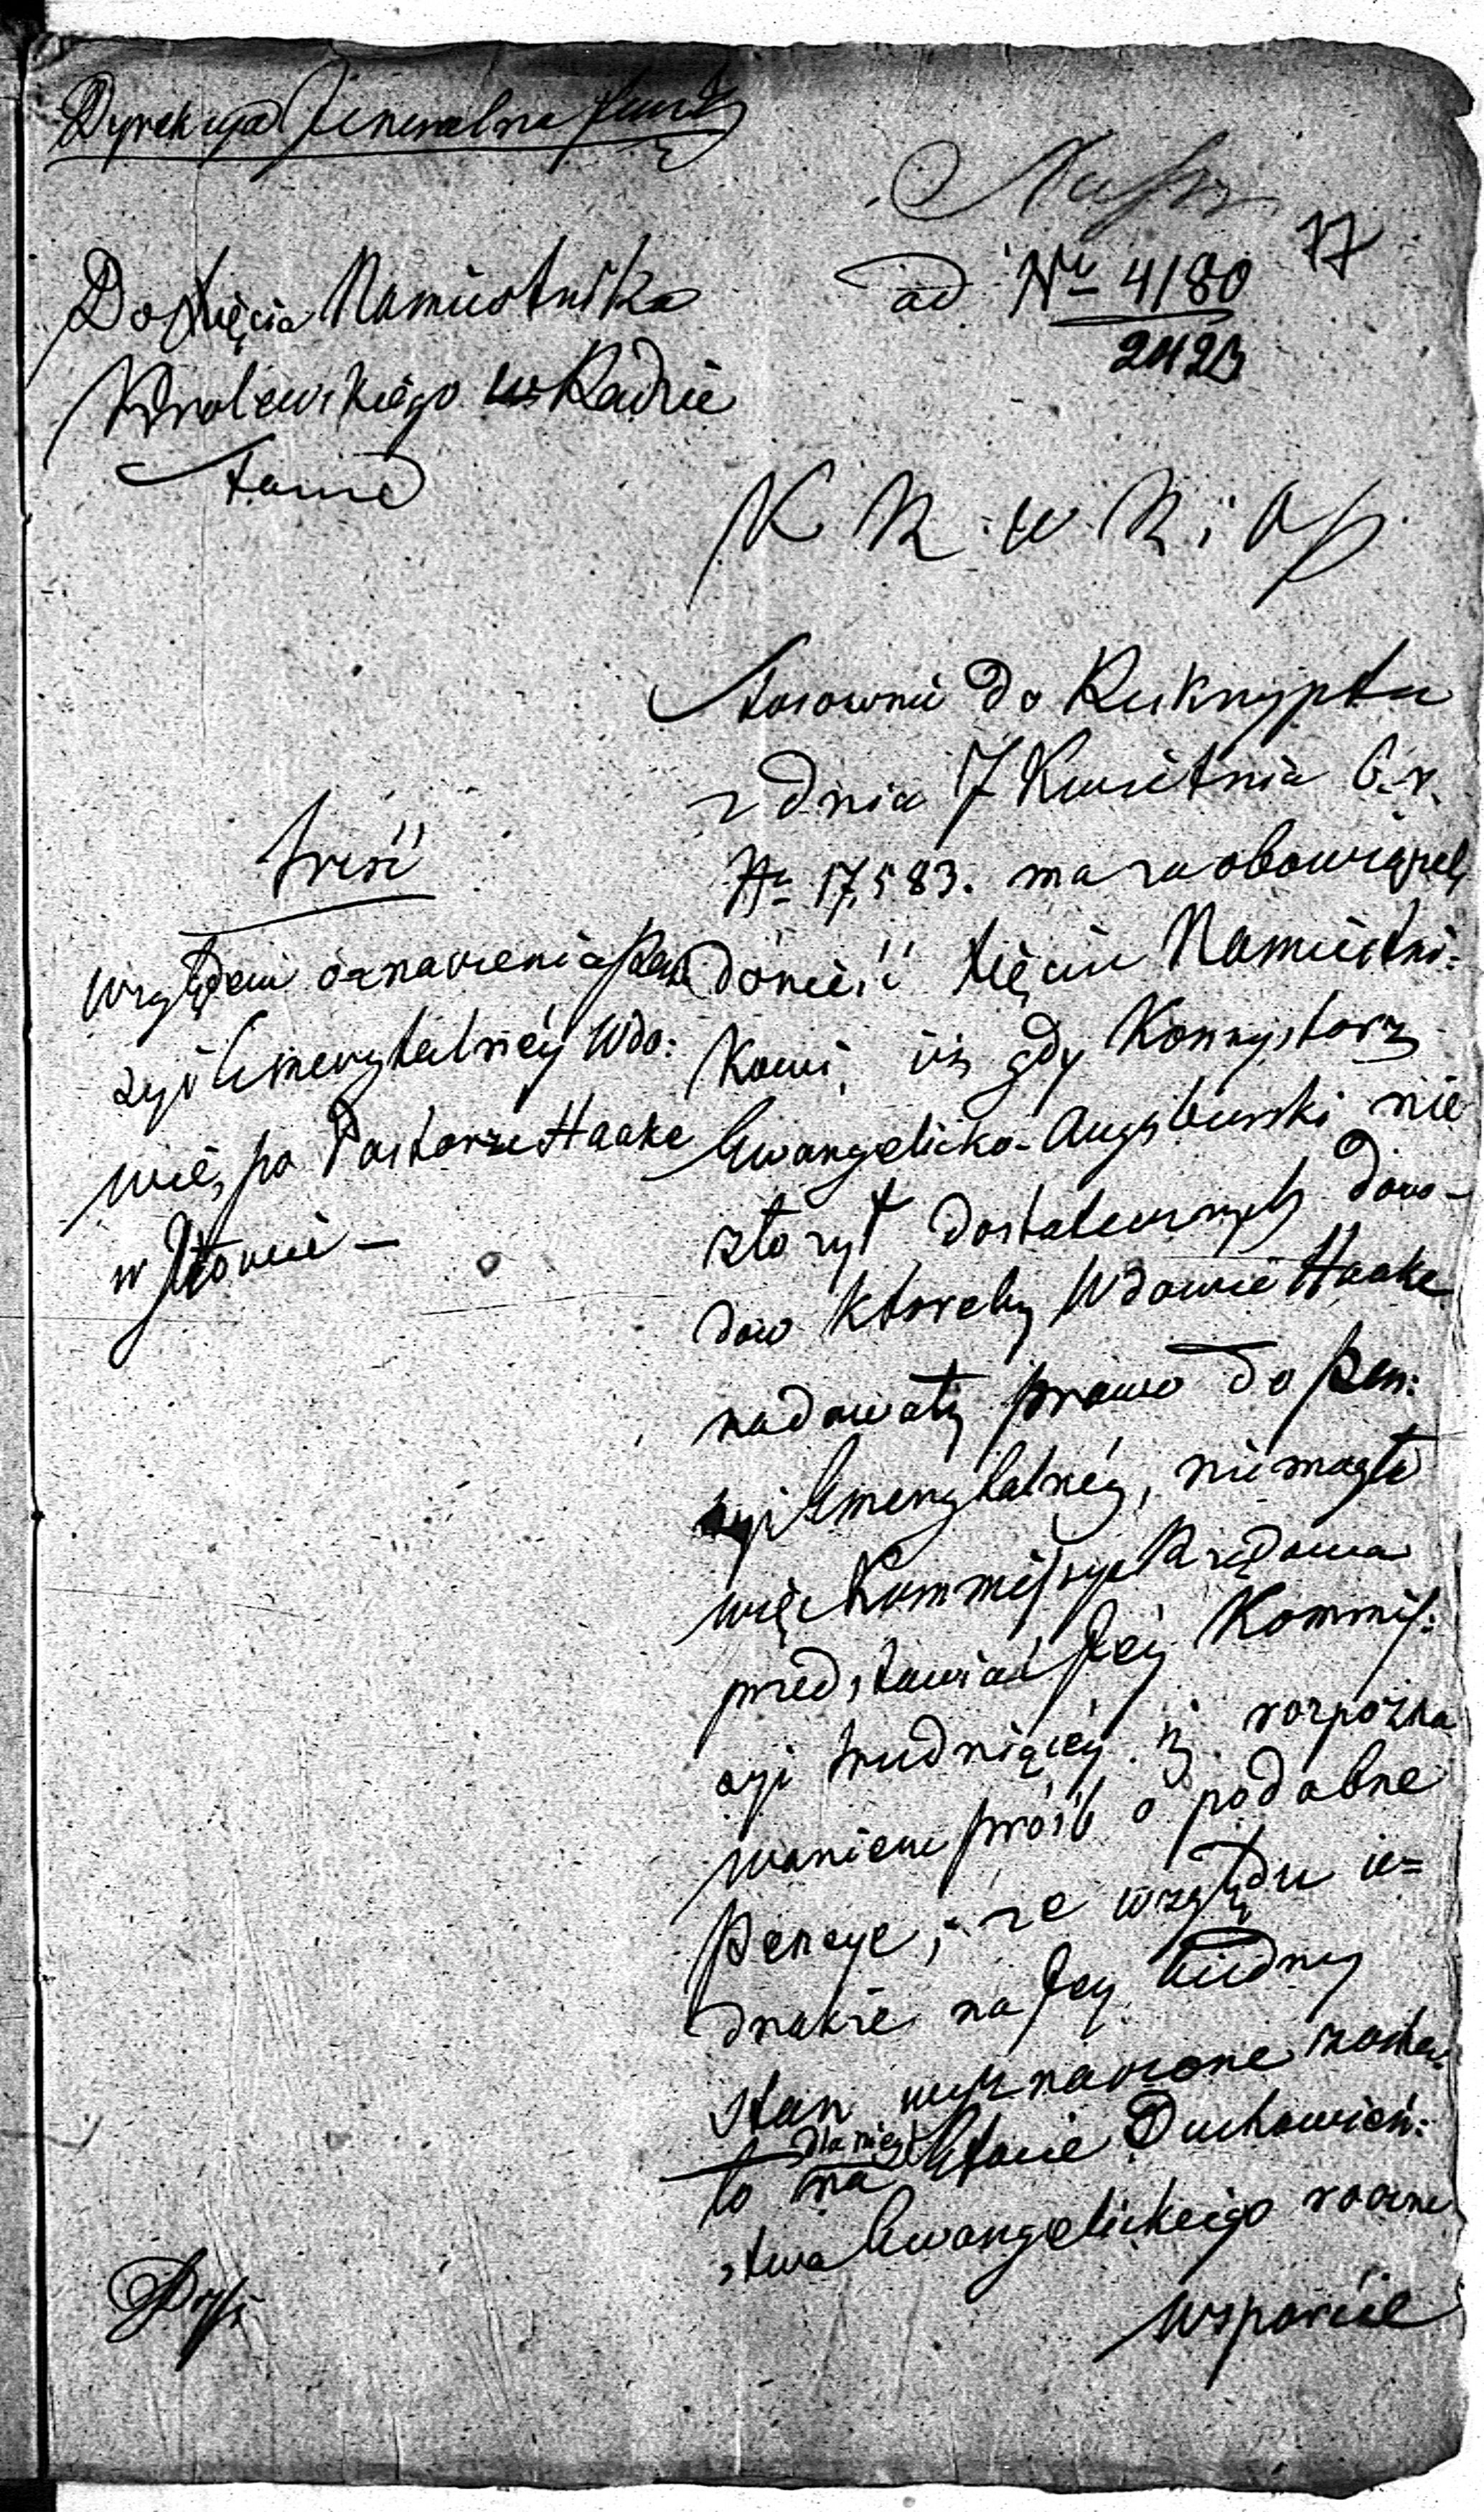 Dyrekcya Jeneralna
77
ad Nº 4180
2423
Do Xięcia Namiestnika
Królewskiego w Radzie
Stanu
K R w R i O p.
Treść
względem oznaczenia Pen
zyi Emerytalnéy Wdo:
wie, po Pastorze Haake
w Iłowie —
Stosownie do Reskryptu
z dnia 7 Kwietnia b. r.
Nº 17,583. ma za obowiązek
donieść Xięciu Namiestni:
kowi, iż gdy Konsystorz
Ewangelicko-Augsburski nie
złożył dostatecznych dowo-
dow któreby Wdowie Haake
nadawały prawo do Pen:
zyi Emerytalnéy, niemogła
więc Kommissya Rządowa
przedstawiać Jéy Kommis:
syi trudniącéy się rozpozna
waniem próśb o podobne
Pencye; ze względu ie=
dnakże na Jey biedny
stan wyznaczone zosta
ło dla niey na Etacie Duchowień:
stwa Ewangelickiego roczne
wsparcie